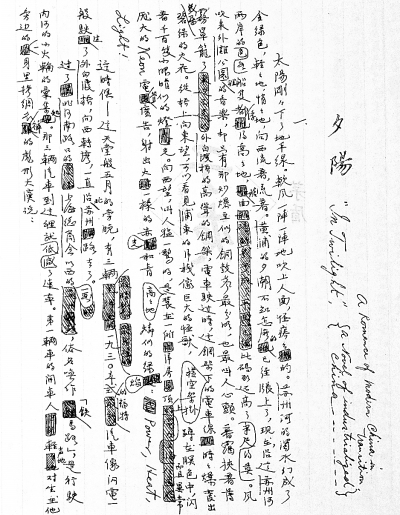 夕陽
"In Twilight,"
A Romance of Modern China in Transition
{a Novel of industrialized} China......
一
太陽剛剛下了地平線。軟風一陣一陣地吹上人面,怪癢癢的。蘇州河的濁水幻成了
金綠色,輕輕地,悄悄地,向西流去。黃浦的夕潮不知怎的已經漲上了,現在沿這蘇州河
兩岸的各色船隻都浮得高高地,艙面比碼頭還高了。風
吹來外灘公園的音樂,却只有那炒爆豆似的銅鼓聲最分明,也最叫人心顫。暮靄挾着薄
霧籠罩了外白渡橋的高聳的鋼架,電車駛過時,這鋼架下橫空架掛的電車線時時爆發出
碧綠的火花。從橋上向東望,可以看見浦東的洋棧像巨大的怪獸,蹲在暝色中,閃
着千百隻小眼睛似的燈光。向西望,叫人猛一驚的,是高高地裝在一所洋房頂上而且異常
龐大的Neon電管廣告,射出火一樣的赤光和青燐似的綠焰:Power, Heat,
Light!
這時候——這天堂般五月的傍晚,有三輛一九三〇年式的汽車像閃電一
般駛過了外白渡橋,向西轉彎,一直沿蘇州路去了。
過了北河南路口的上海總商會以西的一段,俗名喚作「鐵馬路」,是行駛
內河的小火輪的彙集處。那三輛汽車到這裡就減低了速率。第一輛車的開車人輕聲地對坐在他
旁邊的穿一身黑拷綢衣褲的彪形大漢說: